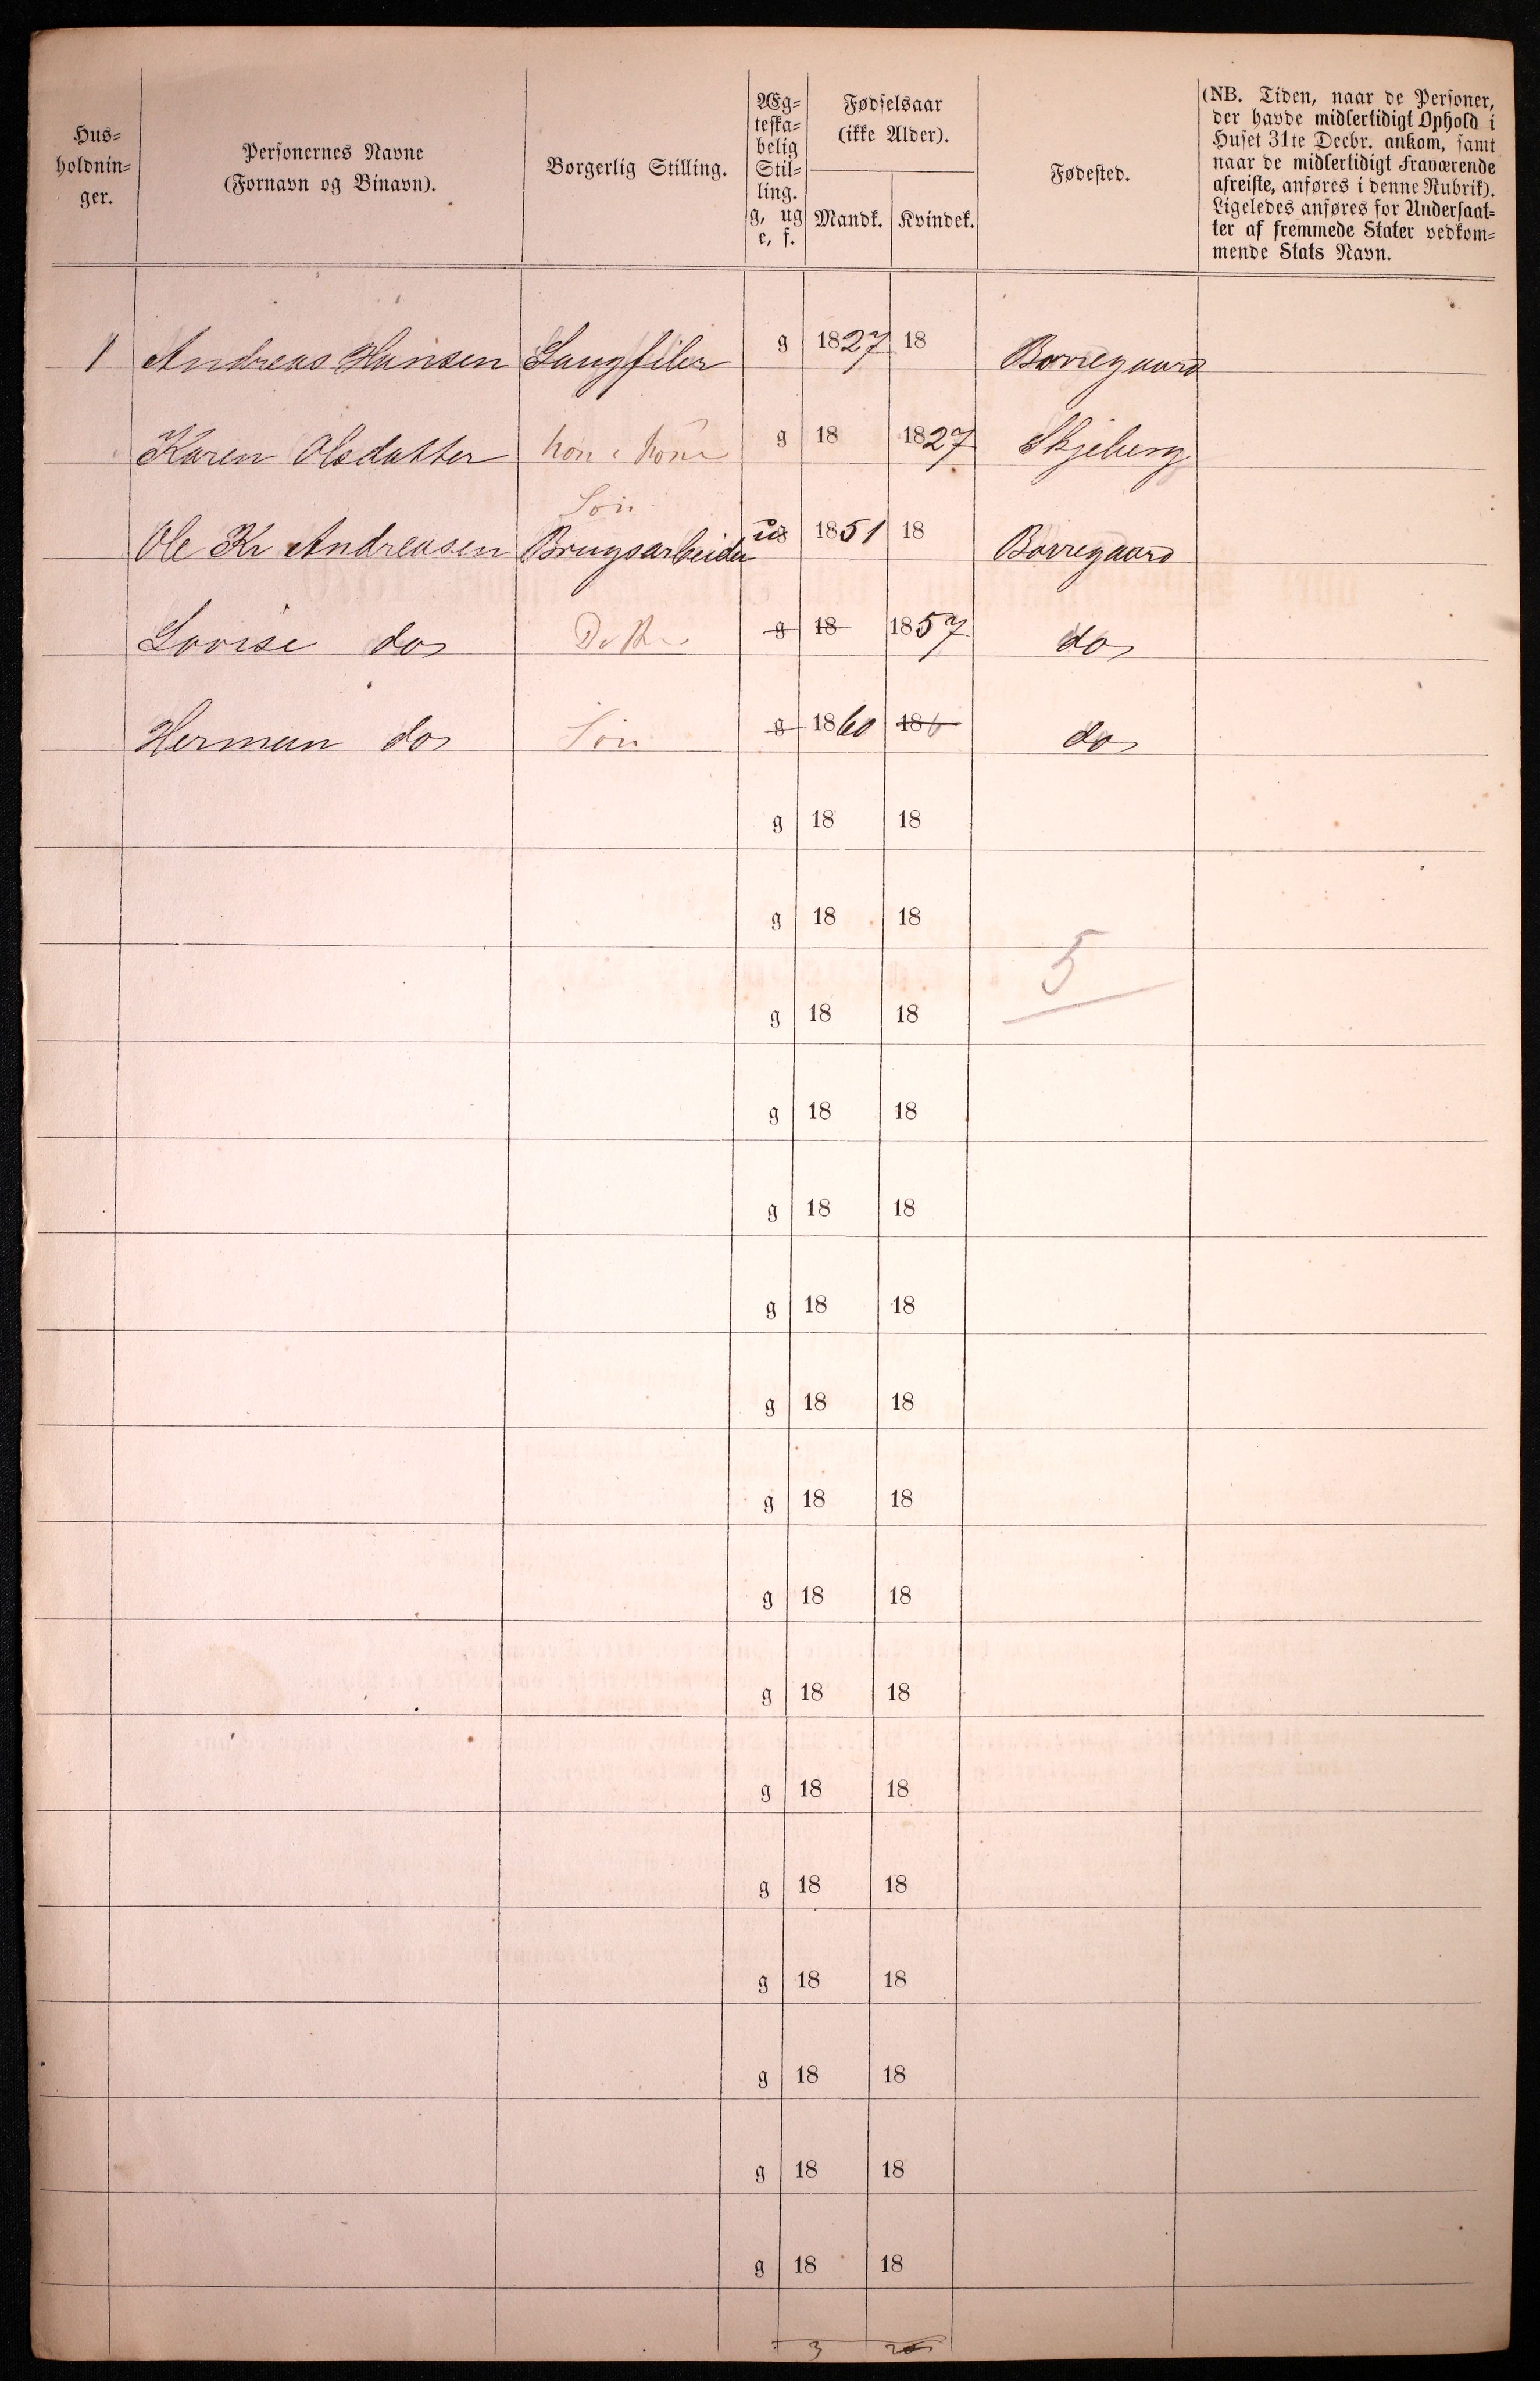 Hus=
holdnin=
ger.
Personernes Navne
(Fornavn og Binavn).
Borgerlig Stilling.
Æg=
teska=
belig
Stil=
ling.
g, ug
e, f.
Fødselsaar
(ikke Alder).
Mandk.
Kvindek.
Fødested.
(NB. Tiden, naar de Personer,
der havde midlertidigt Ophold i
Huset 31te Decbr. ankom, samt
naar de midlertidigt Fraværende
afreiste, anføres i denne Rubrik).
Ligeledes anføres for Undersaat=
ter af fremmede Stater vedkom=
mende Stats Navn.
1 Andreas Hansen Saugfiler g 1827 18 Borregaard
Karen Olsdatter Kone g 18 1827 Skjeberg
Søn
Ole Kr Andreasen Brugsarbeider ug 1851 18 Borregaard
Lovise do g 18 1857 do
Herman do Søn g 1860 186 do
g 18 18
g 18 18
5
g 18 18
g 18 18
g 18 18
g 18 18
g 18 18
g 18 18
g 18 18
g 18 18
g 18 18
g 18 18
g 18 18
g 18 18
g 18 18
g 18 18
3 2